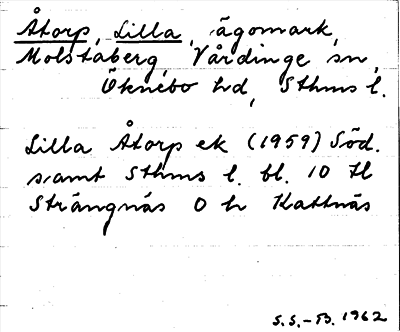 Åtorp, Lilla, ägomark,
Molstaberg, Vårdinge sn,
Öknebo hd, Sthms l.
Lilla Åtorp ek (1959) Söd.
samt Sthms l. bl. 10 Il
Strängnäs O h Kattnäs
S.S.-B. 1962